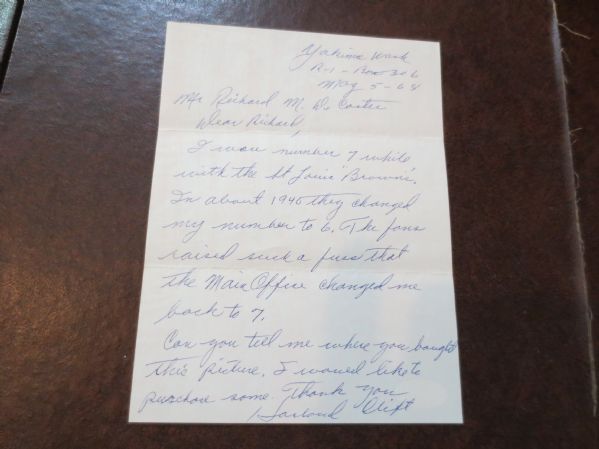 Yakima Wash
R-1 - Box 306
May 5-64
Mr Richard M. De Carter
Dear Richard,
I was number 7 while
with the St Louis "Browns".
In about 1940 they changed
my number to 6. The fans
raised such a fuss that
the Main Office changed me
back to 7.
Can you tell me where you bought
this picture. I would like to
purchase some. Thank you
Harlond Clift